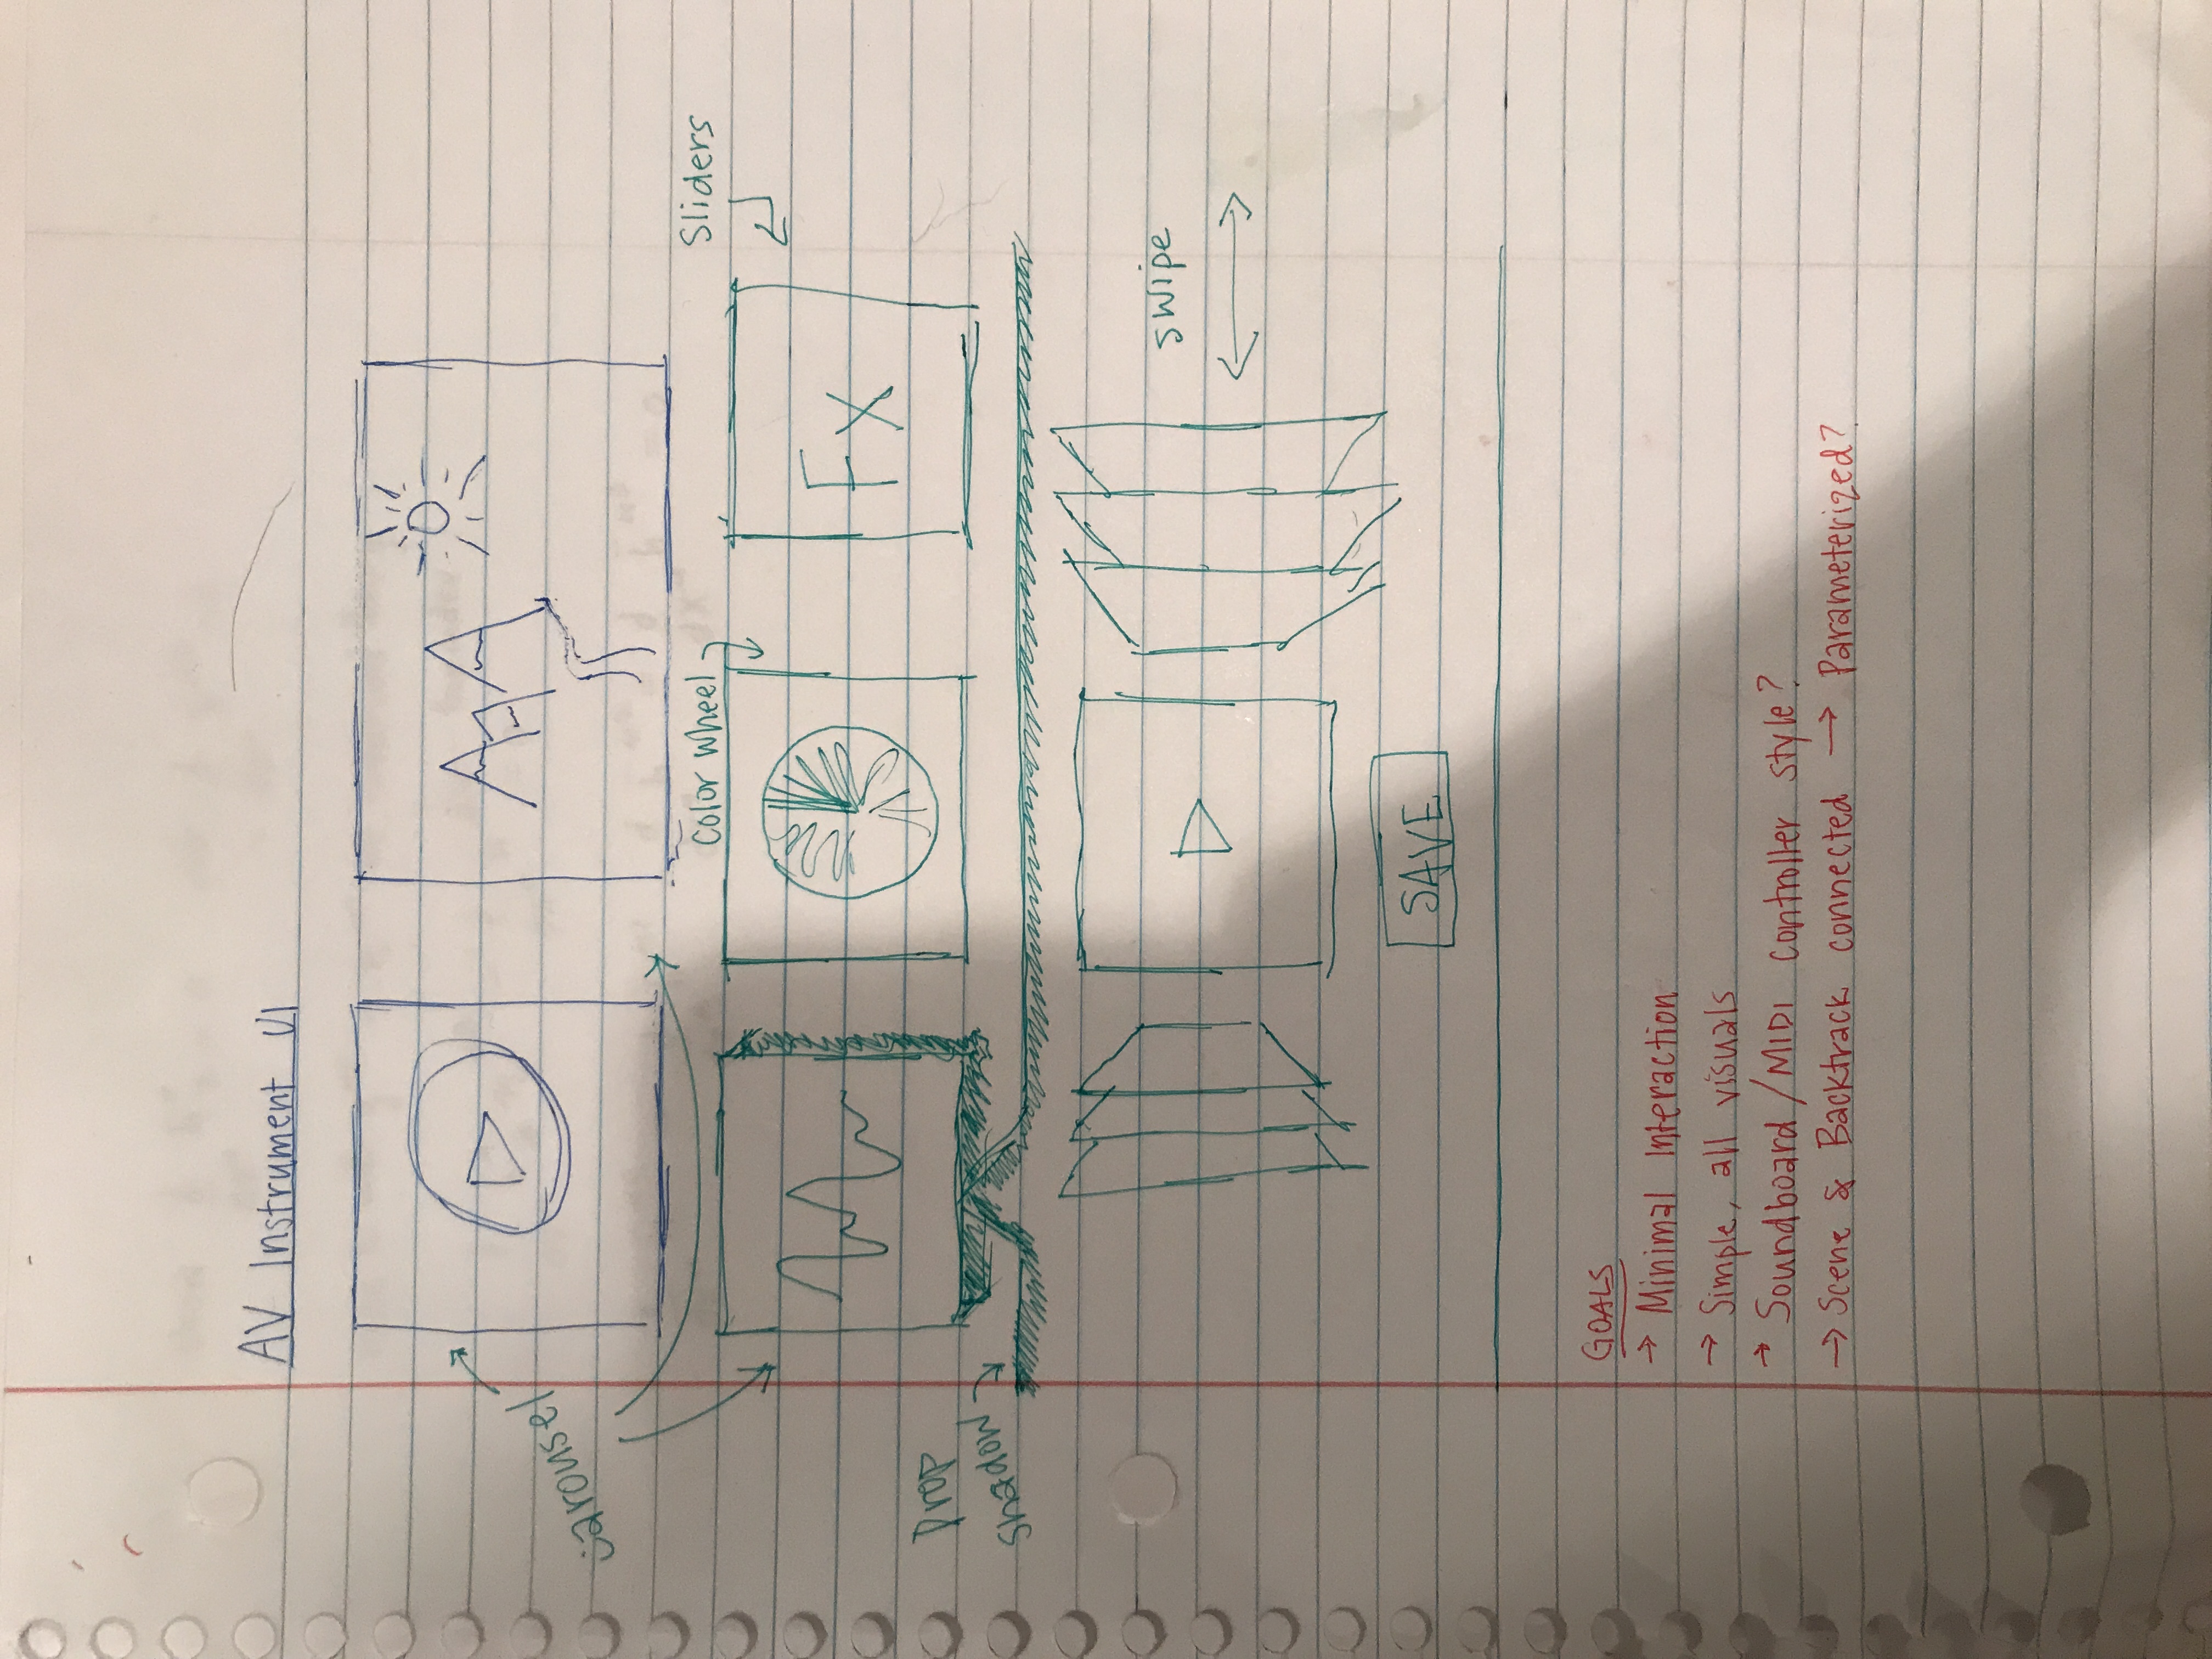 AV Instrument UI
Carousel
Color Wheel
Sliders
FX
Drop
shadow
swipe
SAVE
GOALS
→ Minimal Interaction
→ Simple, all visuals
→ Soundboard/MIDI controller style?
→ Scene & Backtrack connected → Parameterized?